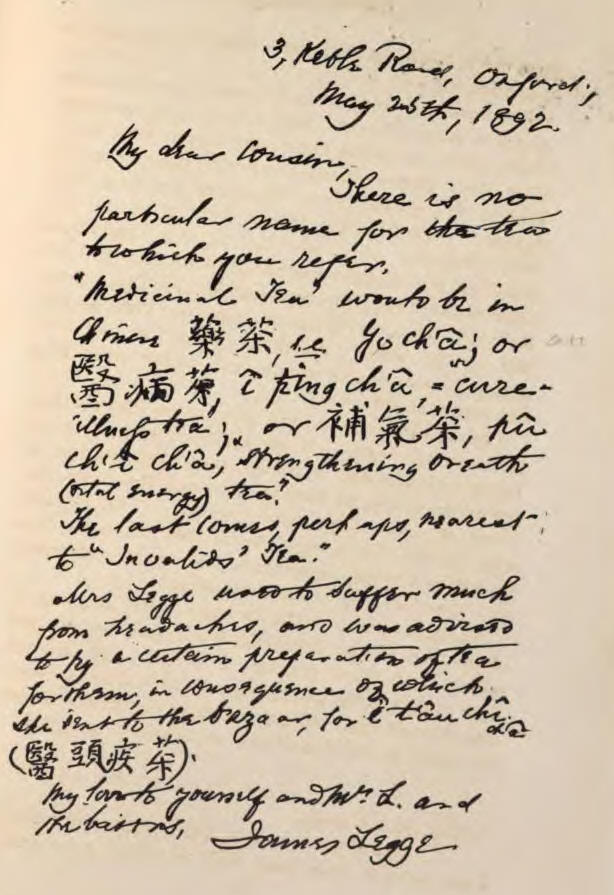 3, Keble Road, Oxford;
May 25th, 1892.
My dear Cousin,
There is no
particular name for the tea
to which you refer.
"Medicinal Tea" would be in
Chinese 藥茶, i.e. Yo ch'â; or
醫病茶, î ping ch'â, = "cure-
illness tea"; or 補氣茶, pû
ch'î ch'â, "strengthening breath
(vital energy) tea."
The last comes, perhaps, nearest
to "Invalids' Tea."
Mrs Legge used to suffer much
from headaches, and was advised
to try a certain preparation of tea
for them, in consequence of which
she sent to the bazaar, for î t'âu chî
châ
(醫頭疾茶).
My love to yourself and Mrs L. and
the
James Legge